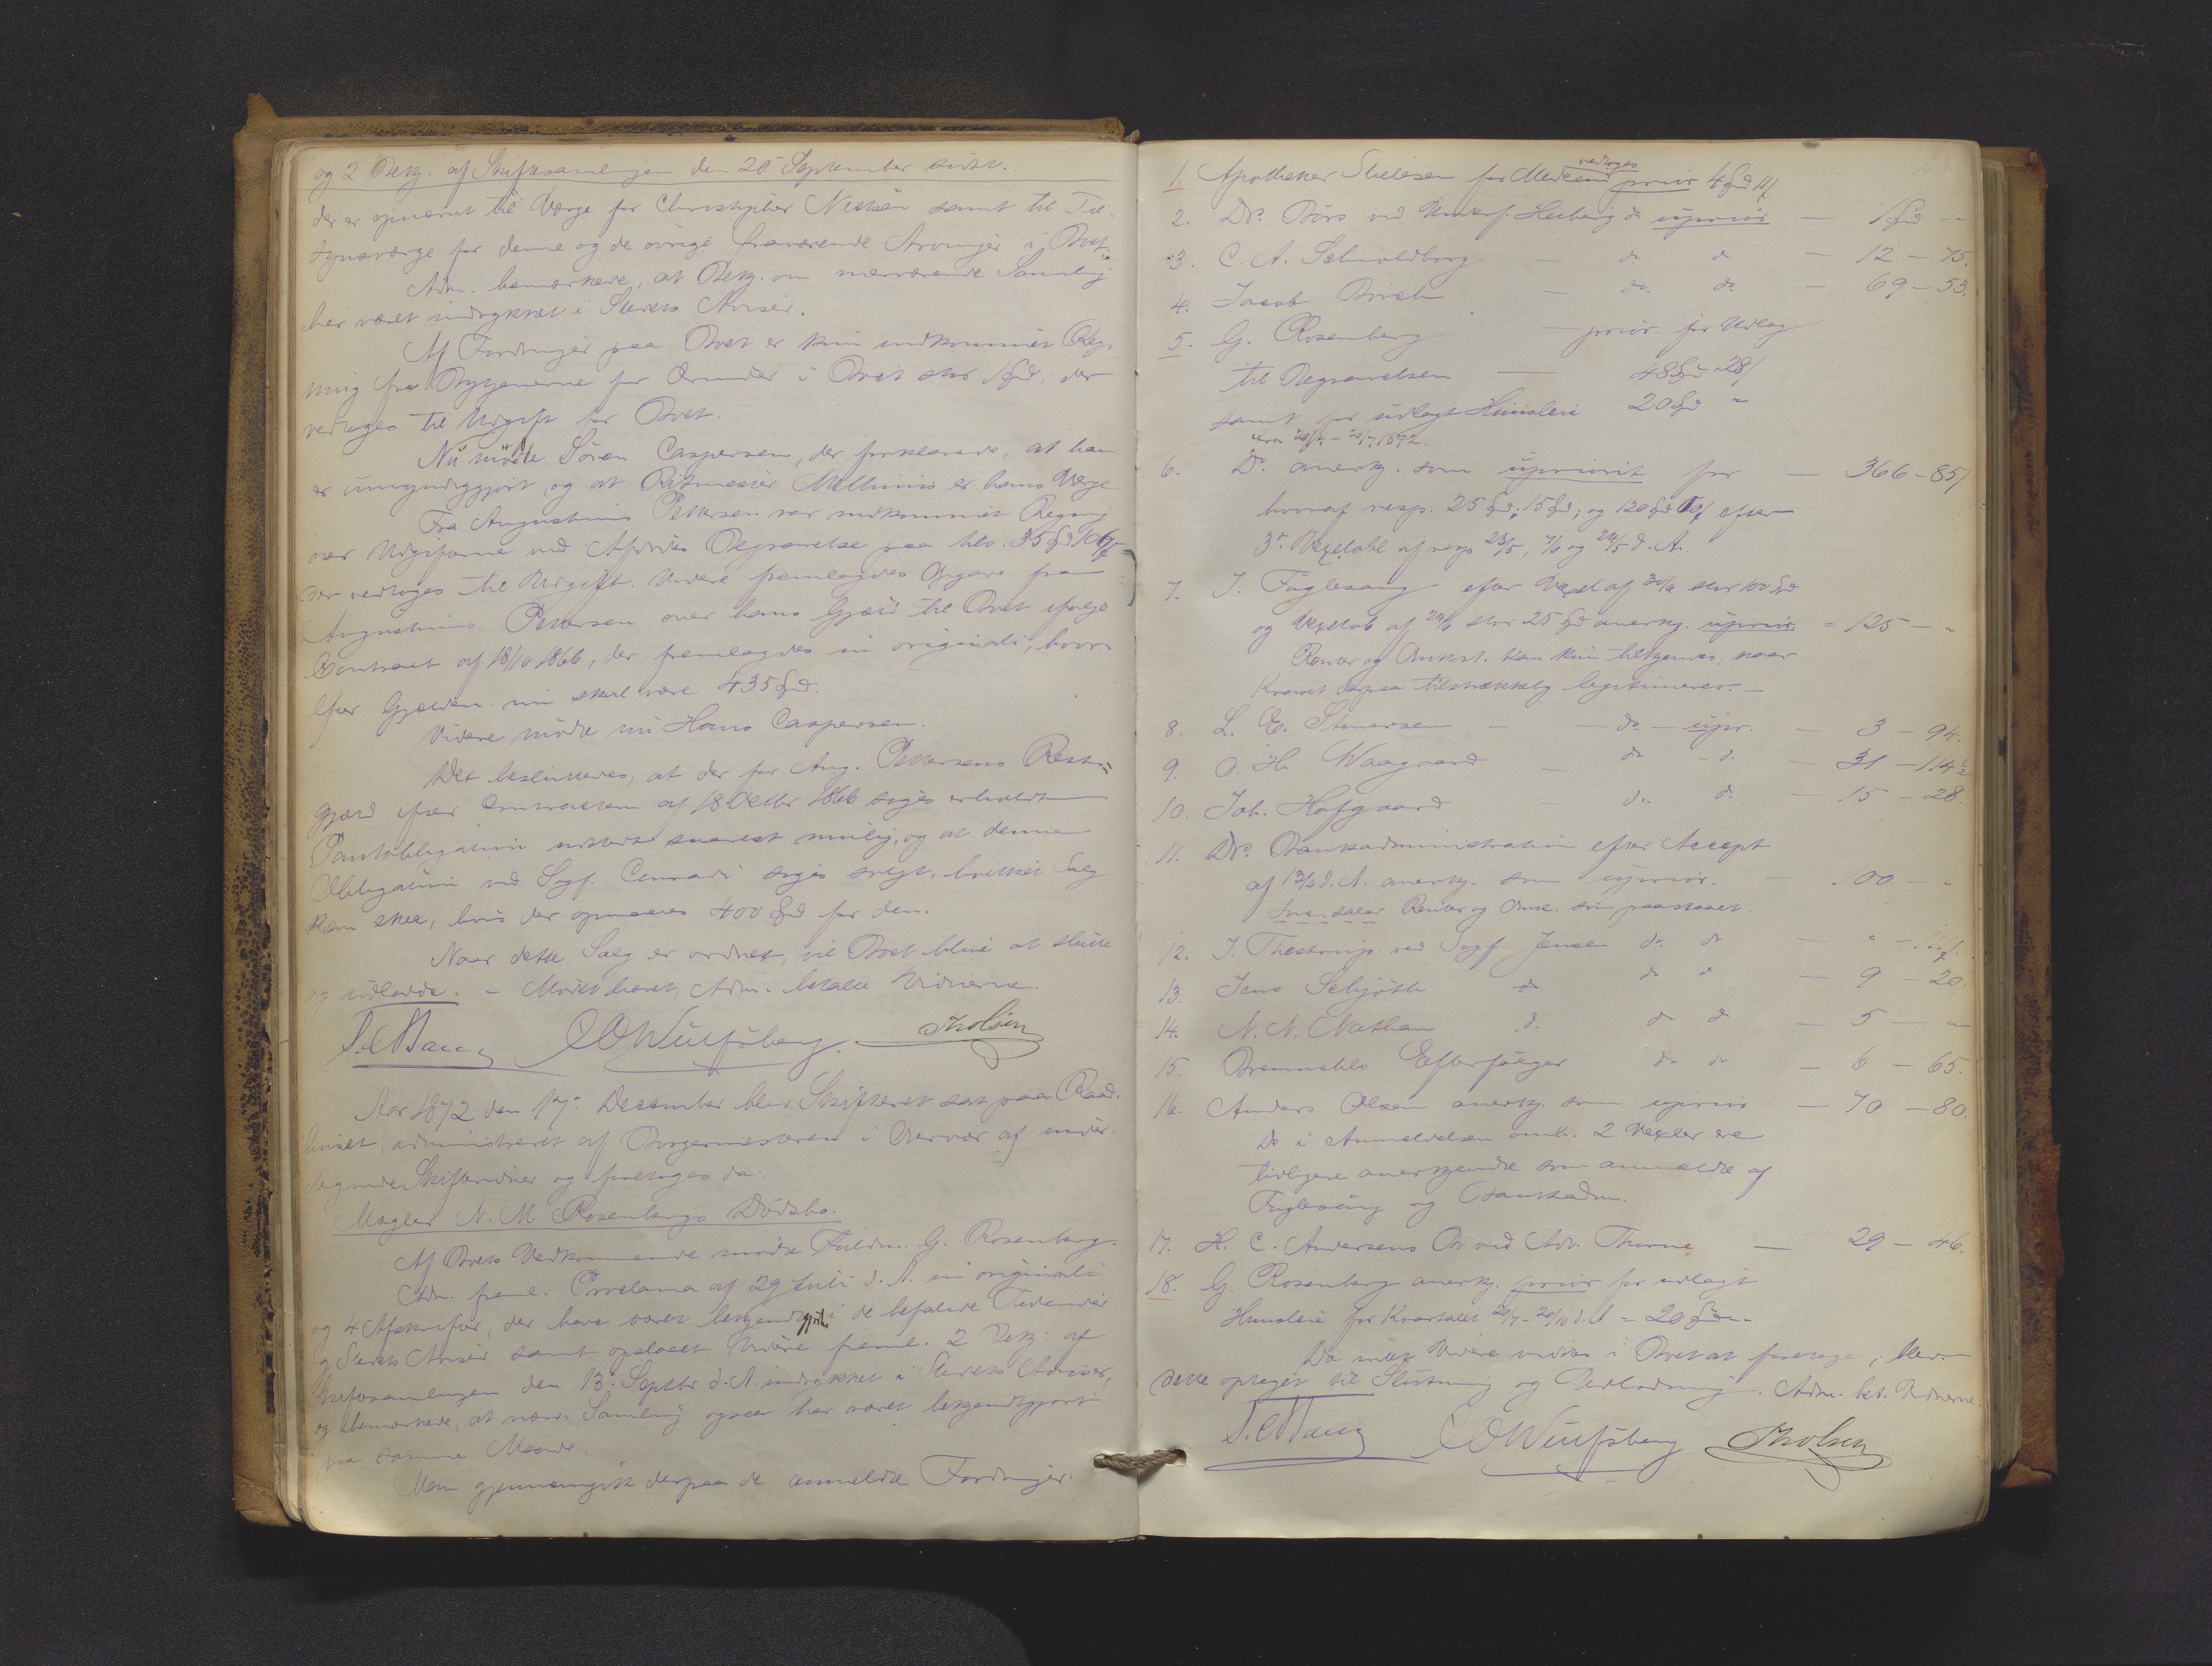 og 2 Bekj. af Skiftesamlingen den 25 September sidst.
der er opnævnt til Værge for Christopher Nielsen samt til Til-
synsværge for denne og de øvrige fraværende Arvinger i Boet.
Adm. bemærkede, at Bekj. om nærværende Samling
har været indrykket i Stedets Aviser.
Af Fordringer paa Boet er kun indkommet Reg-
ning fra for i Boet stor 1 Spd, der
vedtoges til Udgift for Boet.
Nu mødte Sören Caspersen, der forklarede, at han
er umyndiggjort, og at Ritmester er hans Værge.
Fra Augustinus Petersen var indkommet Regning
over Udgifterne ved Afdødes Begravelse paa tils. 35 Spd 106 f
der vedtoges til Udgift. Videre fremlagdes Opgave fra
Augustinus Petersen over hans Gjæld til Boet ifølge
Contract af 18/10 1866, der fremlagdes in originali, hvor-
efter Gjælden nu skal være 435 Spd.
Videre mødte nu Hans Caspersen.
Det besluttedes, at der for Aug. Petersens Rest-
gjæld efter Contracten af 18 Octbr 1866 søges erholdt
Pantobligation udstedt snarest mulig, og at denne
Obligation ved Sagf. Conradi søges solgt, hvilket Salg
kan skee, hvis der opnaaes 400 Spd for den.
Naar dette Salg er ordnet, vil Boet blive at slutte
og udlodde. - Mødet hævet, Adm. betalte Vidnerne.
Aar 1872 den 17. December blev Skifteret sat paa Raad-
huset, administreret af Borgermesteren i Overvær af under-
tegnede Skiftevidner og foretoges da:
Mægler N. M. Rosenbergs Dødsbo.
Af Boets Vedkommende mødte Fuldm. G. Rosenberg.
Adm. freml. Proclama af 29 Juli d. A. in originali
og 4 Afskrifter, der have været bekjendtgjorte i de befalede Tidender
og Stedets Aviser samt opslaaet. Videre freml. 2 Bekj. af
Skiftesamlingen den 13. Septbr d. A. indrykket i Stedets Aviser,
og bemærkede, at nærv. Samling ogsaa har været bekjendtgjort
paa samme Maade.
Man gjennemgik derpaa de anmeldte Fordringer.
vedtoges
1. Apotheker for Medicin prior 4 Spd 11 f
2. Dr. ved Heiberg do uprior — 1 Spd - -
3. C. A. Schwoldborg — do do — 12 - 75.
4. Jacob Birch — do. do. — 69 - 53.
5. G. Rosenberg — prior. for Udlæg
til Begravelsen — 48 Spd 28 f
samt for udlagt Huusleie 20 Spd "
fra 20/4 - 20/7 1872.
6. Do. anerkj. som uprioritt for — 366 - 85 f
hvoraf resp. 25 Spd; 15 Spd; og 120 Spd efter
3de Vexelobl. af resp 23/5, 7/6 og 24/5 d. A.
7. J. Fuglesang efter Vexel af stor 100 Spd
og Vexelob. af stor 25 Spd anerkj. uprior = 125 - "
Renter og Omkst. kan kun tilkjendes, naar
Kravet derpaa tilstrækkelig legitimeres. -
8. L. C. Stenersen — do - upr. — 3 - 94.
9. O. H. Waagaard — do - do. — 31 - 114½
10. Joh. Hofgaard — do. do. — 15 - 28.
11. Dr. Bankadministration efter Accept
af 13/4 d. A. anerkj. som uprior. — 100 - "
Renter og Omk. som paastaaet.
12. J. Thestrup ved Sagf. Jensen do. do — "
13. Jens Schjøth do do do — 9 - 20.
14. N. N. Nathan do. do do — 5 - "
15. Efterfølger do do — 6 - 65.
16. Anders Olsen anerkj. som uprior — 70 - 80.
De i Anmeldelsen omh. 2 Vexler ere
tidligere anerkjendte som anmeldte af
Fuglesang og Bankadm.
17. H. C. Andersens Bo ved Adv. Thorne — 29 - 46.
18. G. Rosenberg anerkj. prior for udlagt
Huusleie for Kvartalet 20/7 - 20/10 d. A = 20 Spd - -
Da intet Videre vidstes i Boet at foretage, blev
dette optaget til Slutning og Udlodning. Adm. bet. Vidnerne.